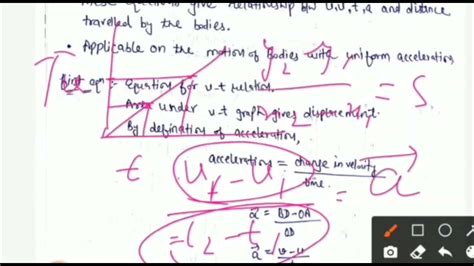 These equations give relationship b/w v, u, t, a and distance
travelled by the bodies.
• Applicable on the motion of bodies with uniform acceleration
First eqn :- Equation for v-t relation.
= S
Area under v-t graph gives displacement.
By defination of acceleration,
t
acceleration = change in velocity
time
= a
a = BD - OA
OD
t2 - t
a = v - u